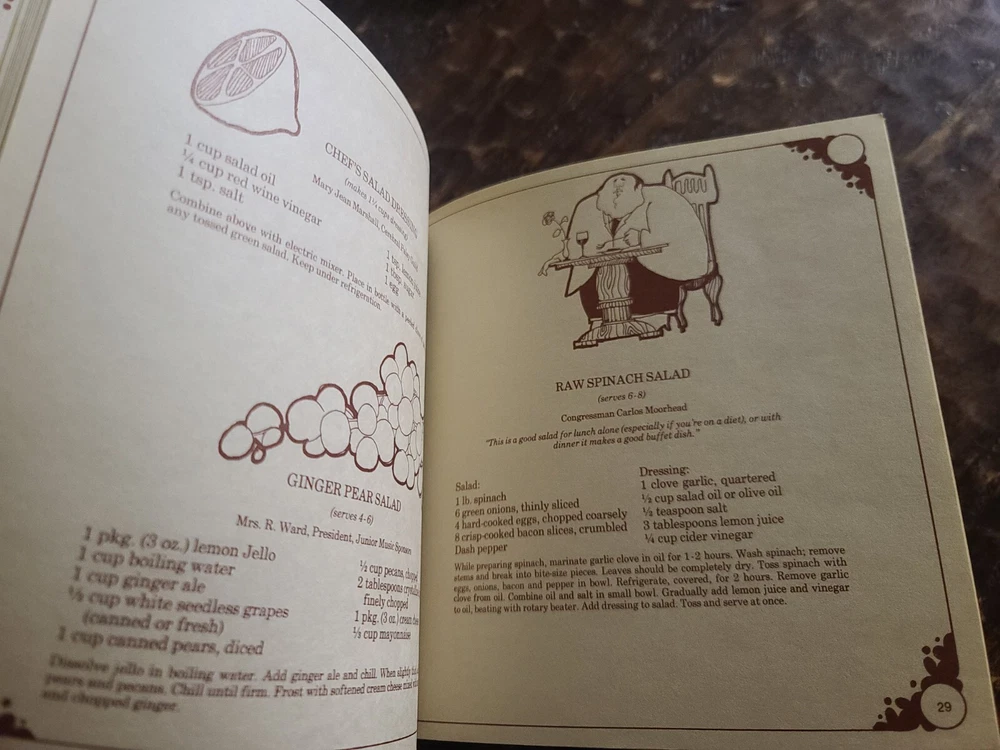 CHEF'S SALAD DRESSING
(makes 1¼ cups dressing)
Mary Jean Marshall,
1 cup salad oil
¼ cup red wine vinegar
1 tsp. salt
1 tsp.
1 egg
Combine above with electric mixer. Place in bottle with a
any tossed green salad. Keep under refrigeration.
GINGER PEAR SALAD
(serves 4-6)
Mrs. R. Ward, President, Junior Music
1 pkg. (3 oz.) lemon Jello
1 cup boiling water
1 cup ginger ale
⅓ cup white seedless grapes
(canned or fresh)
1 cup canned pears, diced
½ cup pecans, chopped
2 tablespoons
finely chopped
1 pkg. (3 oz.) cream
⅓ cup mayonnaise
Dissolve jello in boiling water. Add ginger ale and chill. When slightly
pears and pecans. Chill until firm. Frost with softened cream cheese
and chopped ginger.
RAW SPINACH SALAD
(serves 6-8)
Congressman Carlos Moorhead
"This is a good salad for lunch alone (especially if you're on a diet), or with
dinner it makes a good buffet dish."
Salad:
1 lb. spinach
6 green onions, thinly sliced
4 hard-cooked eggs, chopped coarsely
8 crisp-cooked bacon slices, crumbled
Dash pepper
Dressing:
1 clove garlic, quartered
½ cup salad oil or olive oil
½ teaspoon salt
3 tablespoons lemon juice
¼ cup cider vinegar
While preparing spinach, marinate garlic clove in oil for 1-2 hours. Wash spinach; remove
stems and break into bite-size pieces. Leaves should be completely dry. Toss spinach with
eggs, onions, bacon and pepper in bowl. Refrigerate, covered, for 2 hours. Remove garlic
clove from oil. Combine oil and salt in small bowl. Gradually add lemon juice and vinegar
to oil, beating with rotary beater. Add dressing to salad. Toss and serve at once.
29